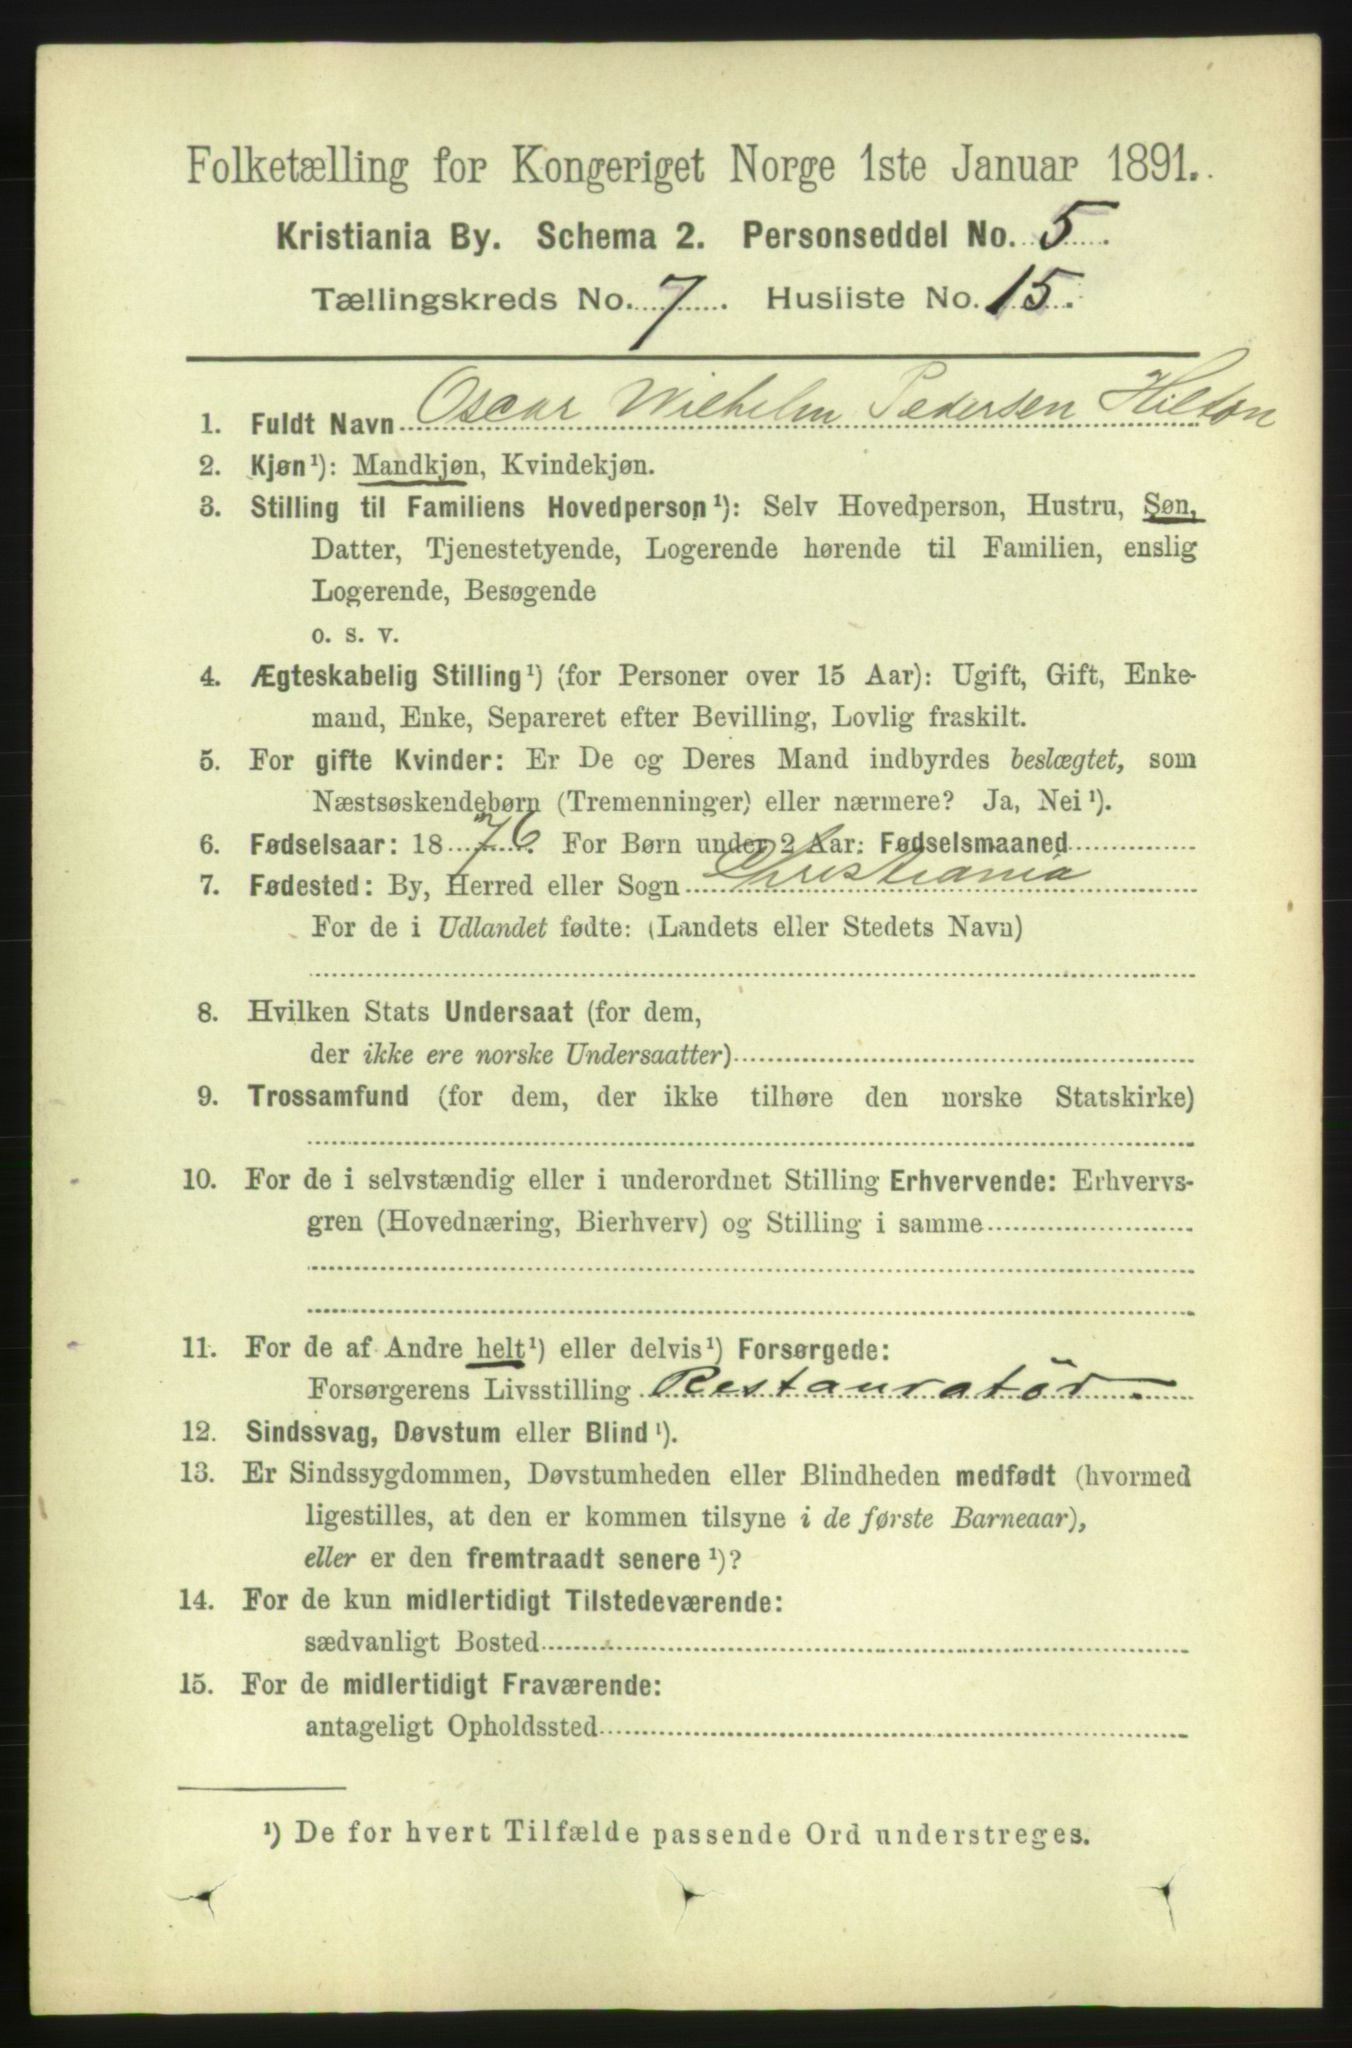 Folketælling for Kongeriget Norge 1ste Januar 1891.
Kristiania By. Schema 2. Personseddel No. 5.
Tællingskreds No. 7. Husliste No. 15.
1. Fuldt Navn Oscar Wilhelm Pedersen Hilton
2. Kjøn¹): Mandkjøn, Kvindekjøn.
3. Stilling til Familiens Hovedperson¹): Selv Hovedperson, Hustru, Søn,
Datter, Tjenestetyende, Logerende hørende til Familien, enslig
Logerende, Besøgende
o. s. v.
4. Ægteskabelig Stilling¹) (for Personer over 15 Aar): Ugift, Gift, Enke-
mand, Enke, Separeret efter Bevilling, Lovlig fraskilt.
5. For gifte Kvinder: Er De og Deres Mand indbyrdes beslægtet, som
Næstsøskendebørn (Tremenninger) eller nærmere? Ja, Nei¹).
6. Fødselsaar: 1876. For Børn under 2 Aar: Fødselsmaaned
7. Fødested: By, Herred eller Sogn Christiania
For de i Udlandet fødte: (Landets eller Stedets Navn)
8. Hvilken Stats Undersaat (for dem,
der ikke ere norske Undersaatter)
9. Trossamfund (for dem, der ikke tilhøre den norske Statskirke)
10. For de i selvstændig eller i underordnet Stilling Erhvervende: Erhvervs-
gren (Hovednæring, Bierhverv) og Stilling i samme
11. For de af Andre helt¹) eller delvis¹) Forsørgede:
Forsørgerens Livsstilling Restauratör.
12. Sindssvag, Døvstum eller Blind¹).
13. Er Sindssygdommen, Døvstumheden eller Blindheden medfødt (hvormed
ligestilles, at den er kommen tilsyne i de første Barneaar),
eller er den fremtraadt senere¹)?
14. For de kun midlertidigt Tilstedeværende:
sædvanligt Bosted
15. For de midlertidigt Fraværende:
antageligt Opholdssted
¹) De for hvert Tilfælde passende Ord understreges.